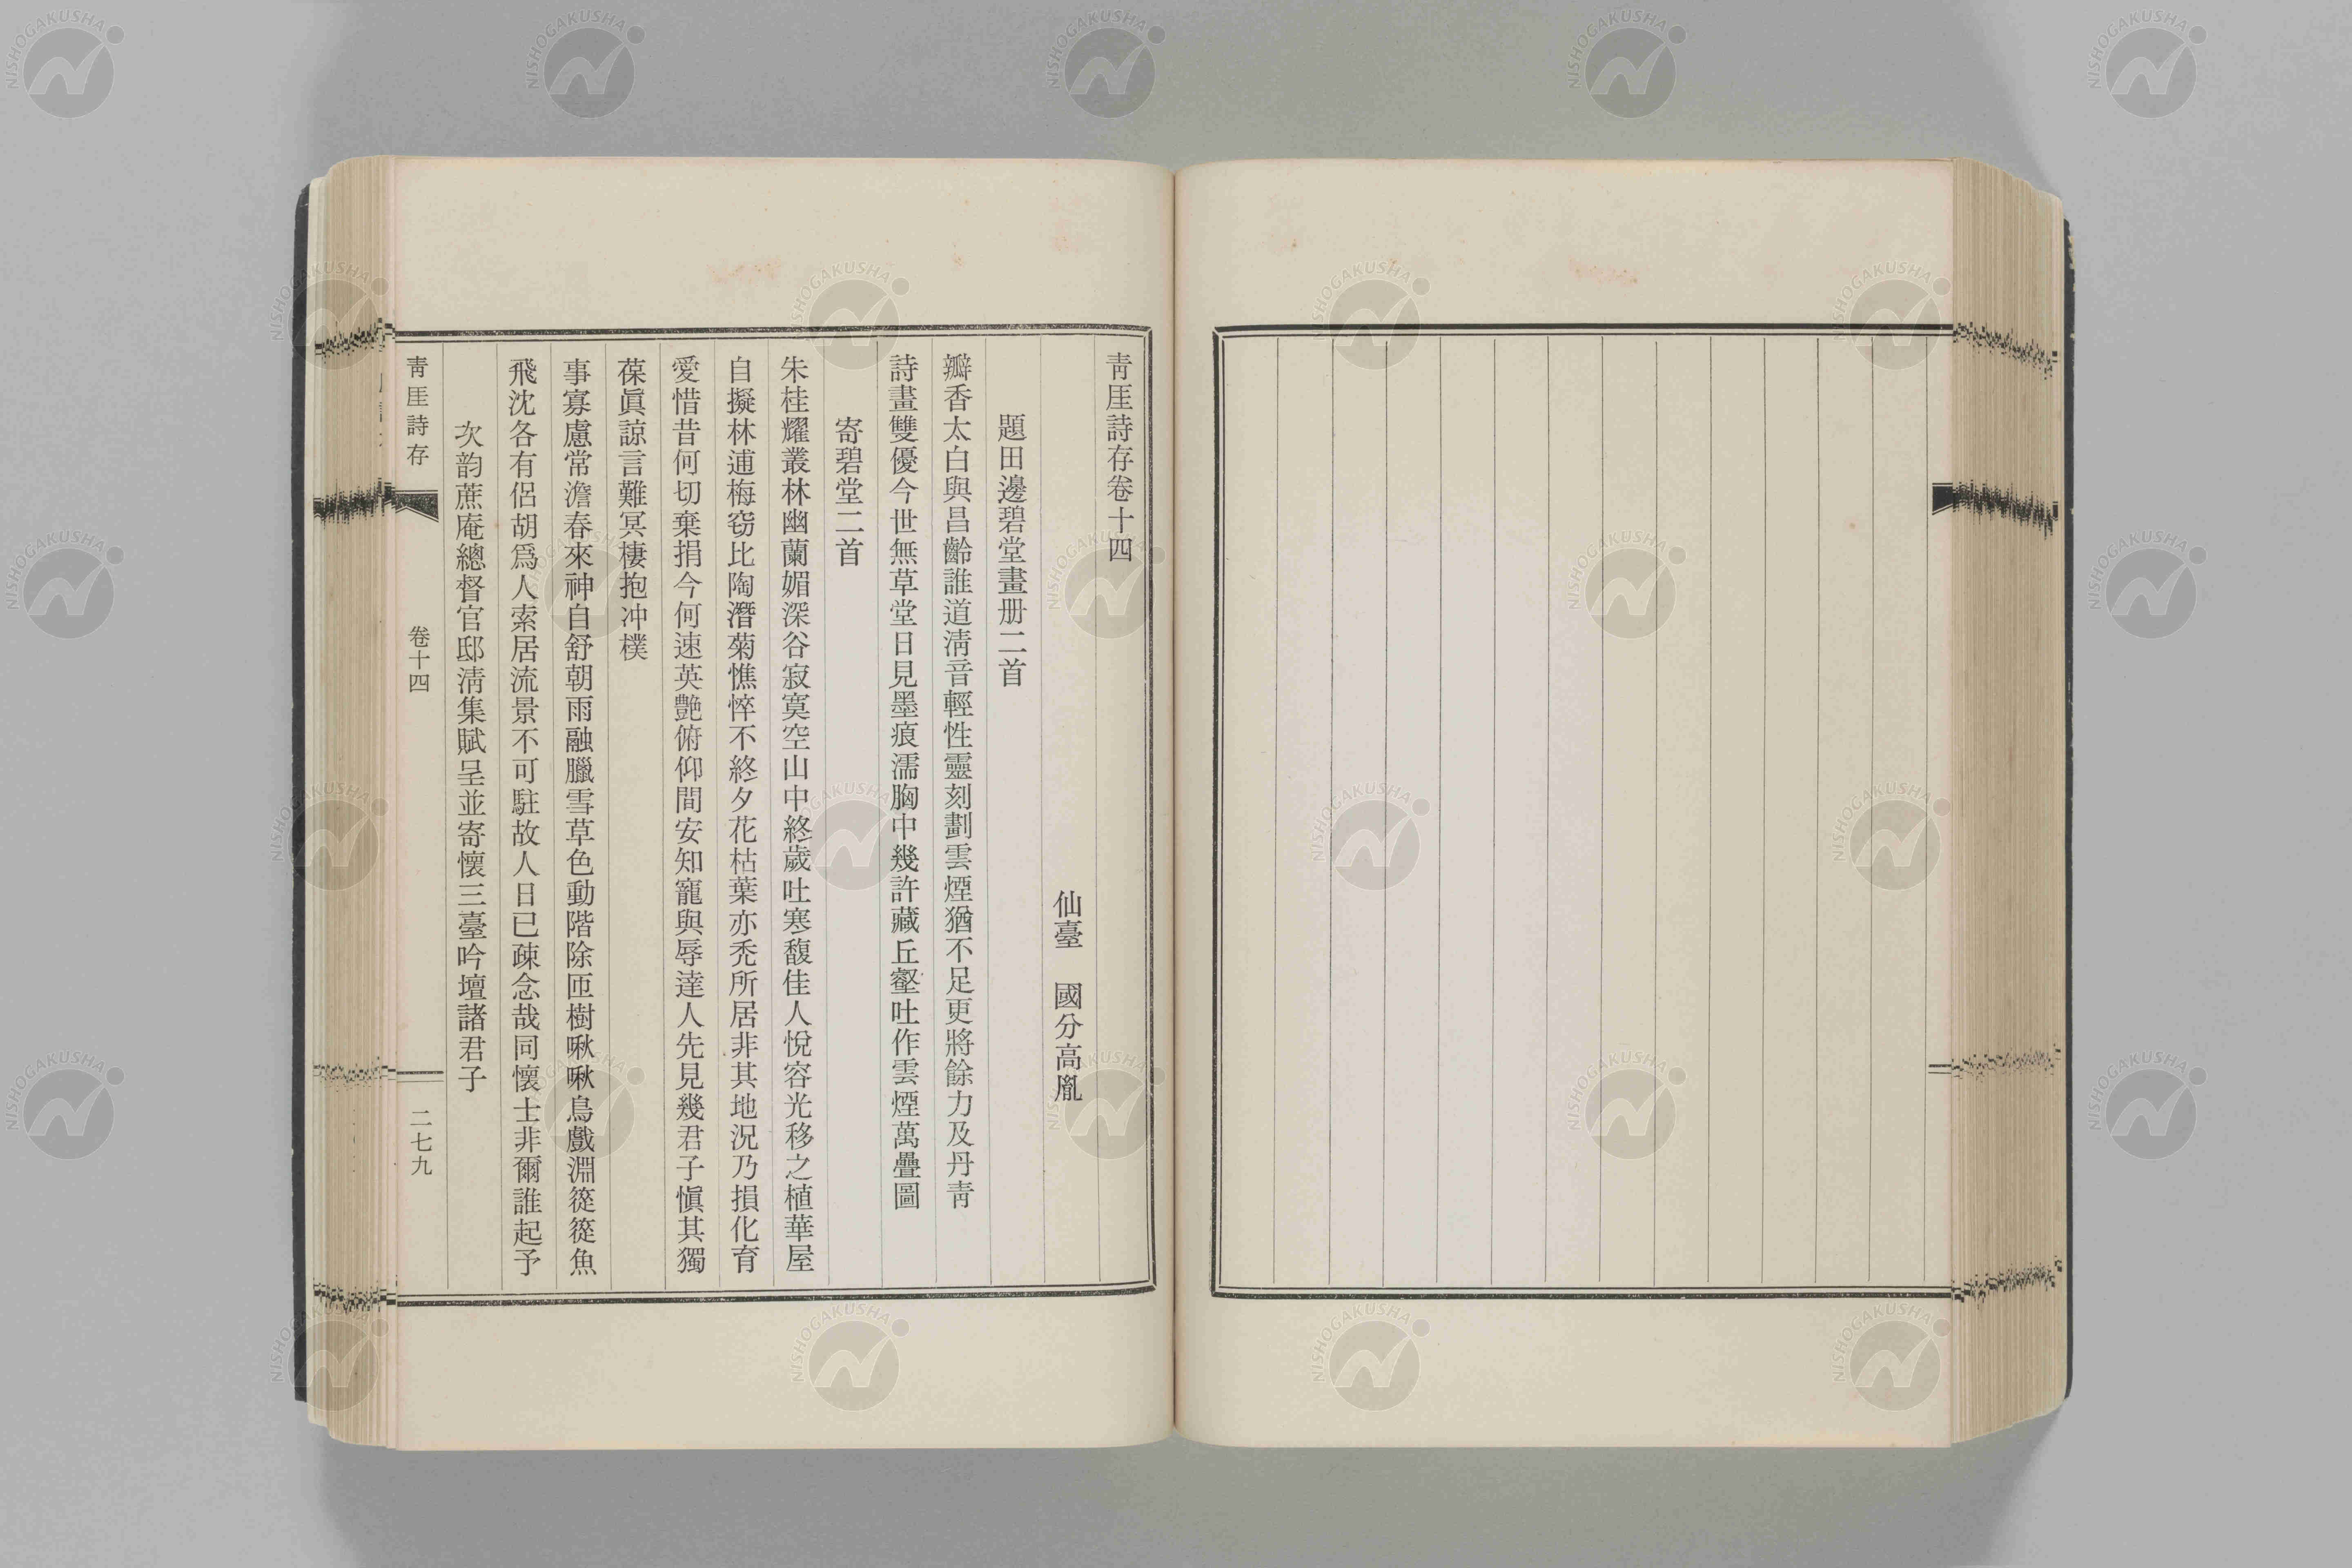 靑厓詩存卷十四
仙臺　國分高胤
題田邊碧堂畫册二首
瓣香太白與昌齡誰道淸音輕性靈刻劃雲煙猶不足更將餘力及丹靑
詩畫雙優今世無草堂日見墨痕濡胸中幾許藏丘壑吐作雲煙萬疊圖
寄碧堂二首
朱桂耀叢林幽蘭媚深谷寂寞空山中終歲吐寒馥佳人悅容光移之植華屋
自擬林逋梅窃比陶潛菊憔悴不終夕花枯葉亦禿所居非其地況乃損化育
愛惜昔何切棄捐今何速英艶俯仰間安知寵與辱達人先見幾君子愼其獨
葆眞諒言難冥棲抱冲樸
事寡慮常澹春來神自舒朝雨融臘雪草色動階除匝樹啾啾鳥戲淵篵篵魚
飛沈各有侶胡爲人索居流景不可駐故人日已疎念哉同懷士非爾誰起予
次韵蔗庵總督官邸淸集賦呈並寄懷三臺吟壇諸君子
靑厓詩存
卷十四
二七九
NISHOGAKUSHA